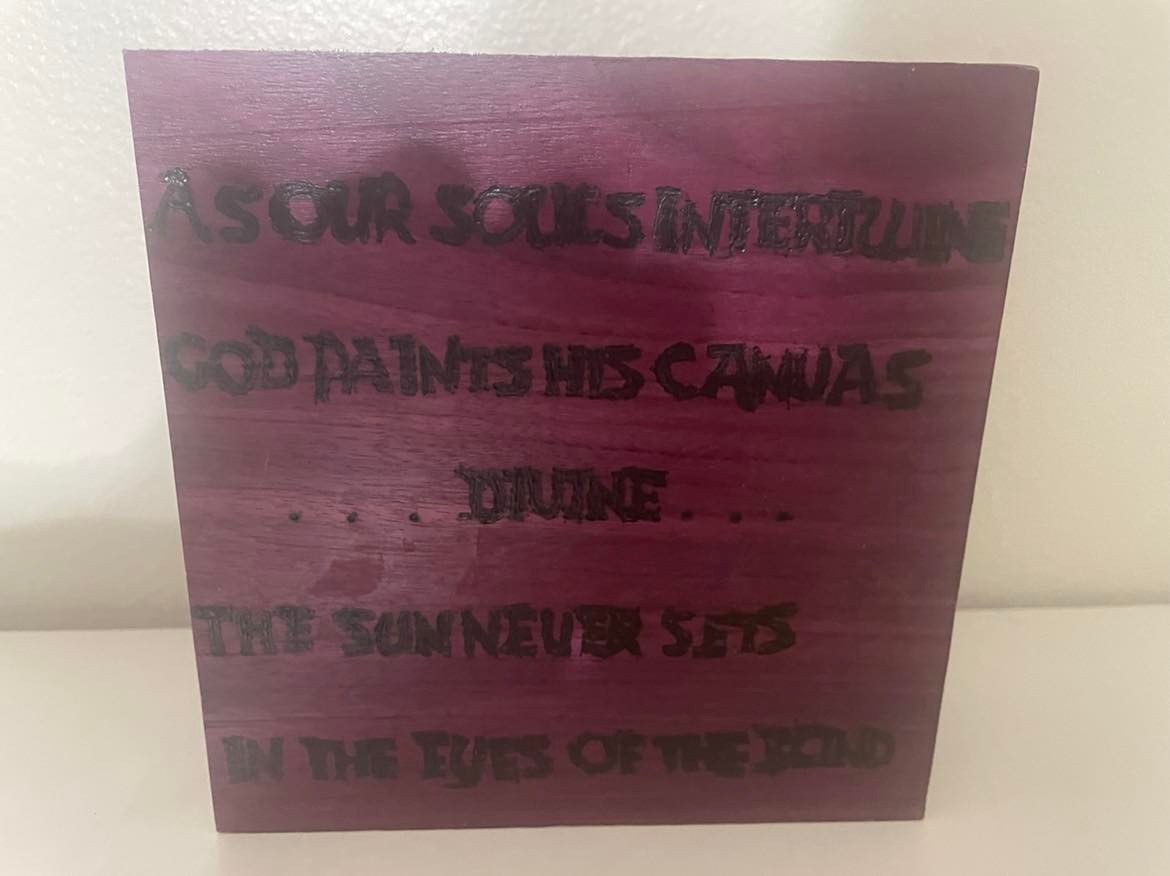 AS OUR SOULS INTERTWINE
GOD PAINTS HIS CANVAS
. . . DIVINE . . .
THE SUN NEVER SETS
IN THE EYES OF THE BLIND